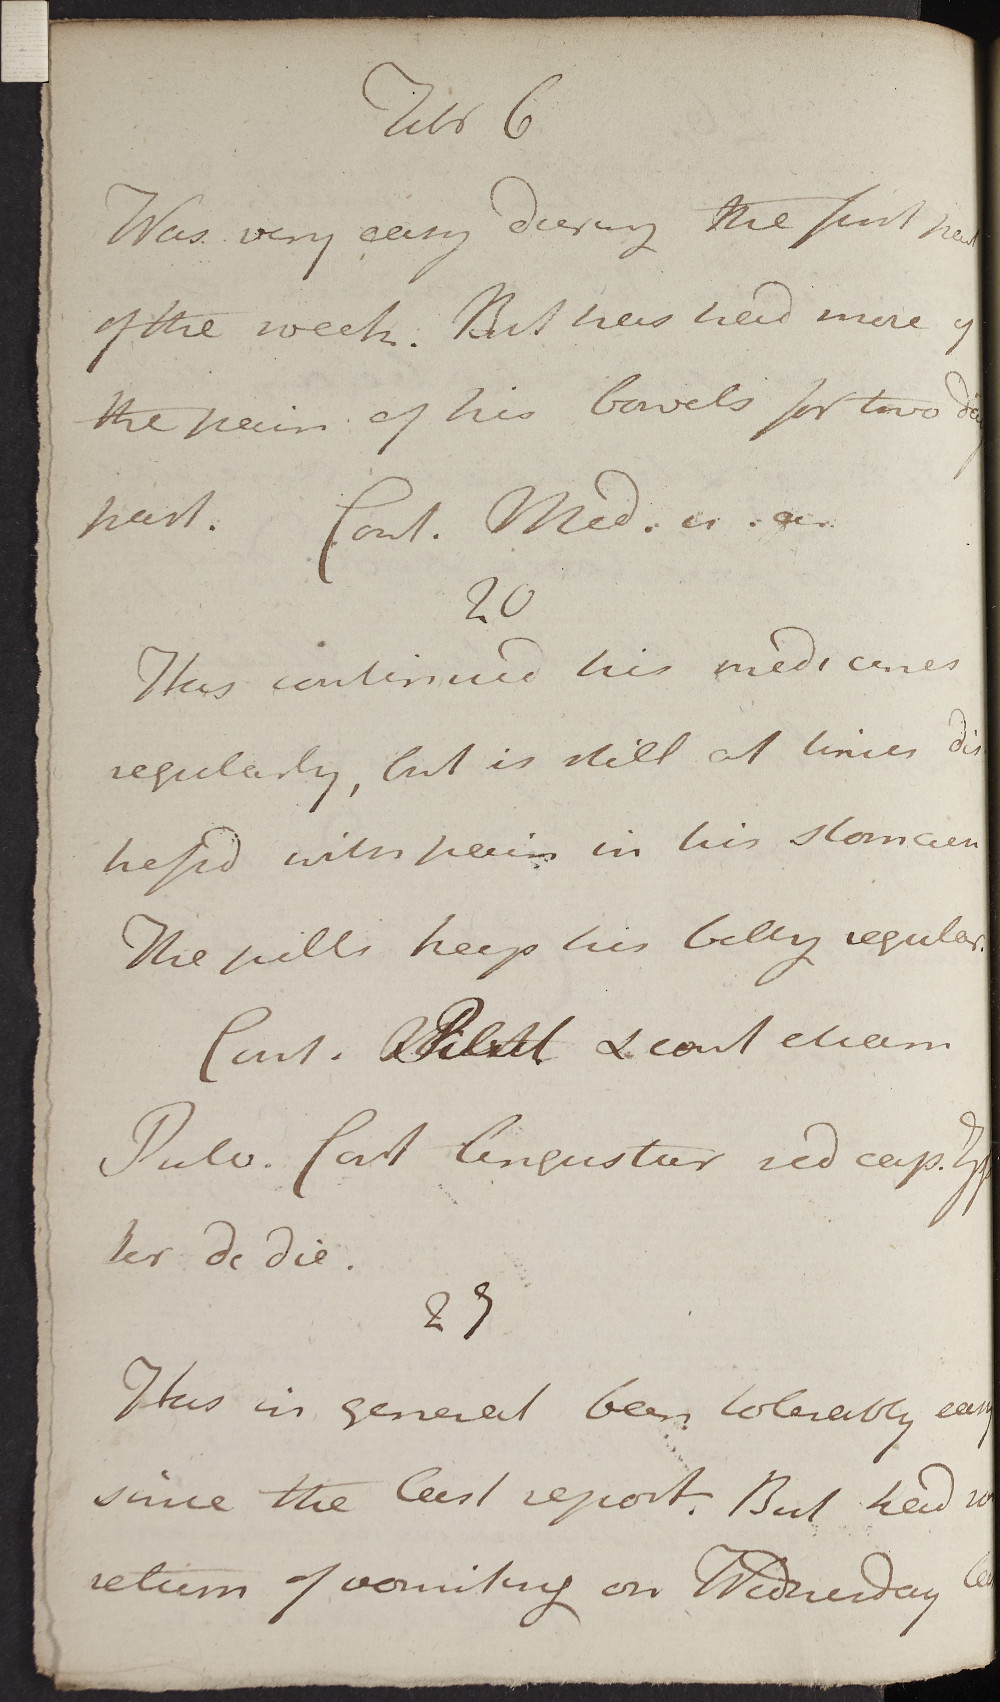 Febr 6
Was very easy during the first
of the week. But has had more
the pain of his bowels for two
past. Cont. Med. u. a.
20
Has continued his medicines
regularly, but is still at times dis
tress'd with pain in his stomach
The pills keep his belly regular.
Cont. & cont etiam
Pulv. Cort Angustur
ter de die.
27
Has in general been tolerably easy
since the last report. But had
return of vomiting on Wednesday